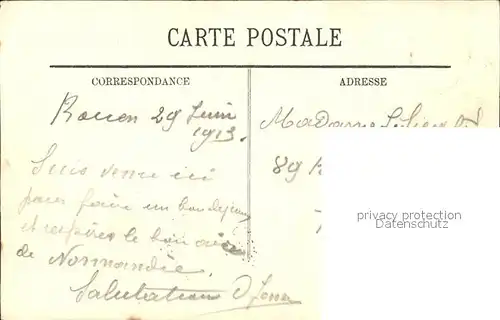 CARTE POSTALE
CORRESPONDANCE
ADRESSE
Rouen 29 Juin
1913.
Madame
89
Suis venu ici
pour faire un bon dejeuner
et respirer le bon air
de Normandie.
Salutation
privacy protection
Datenschutz